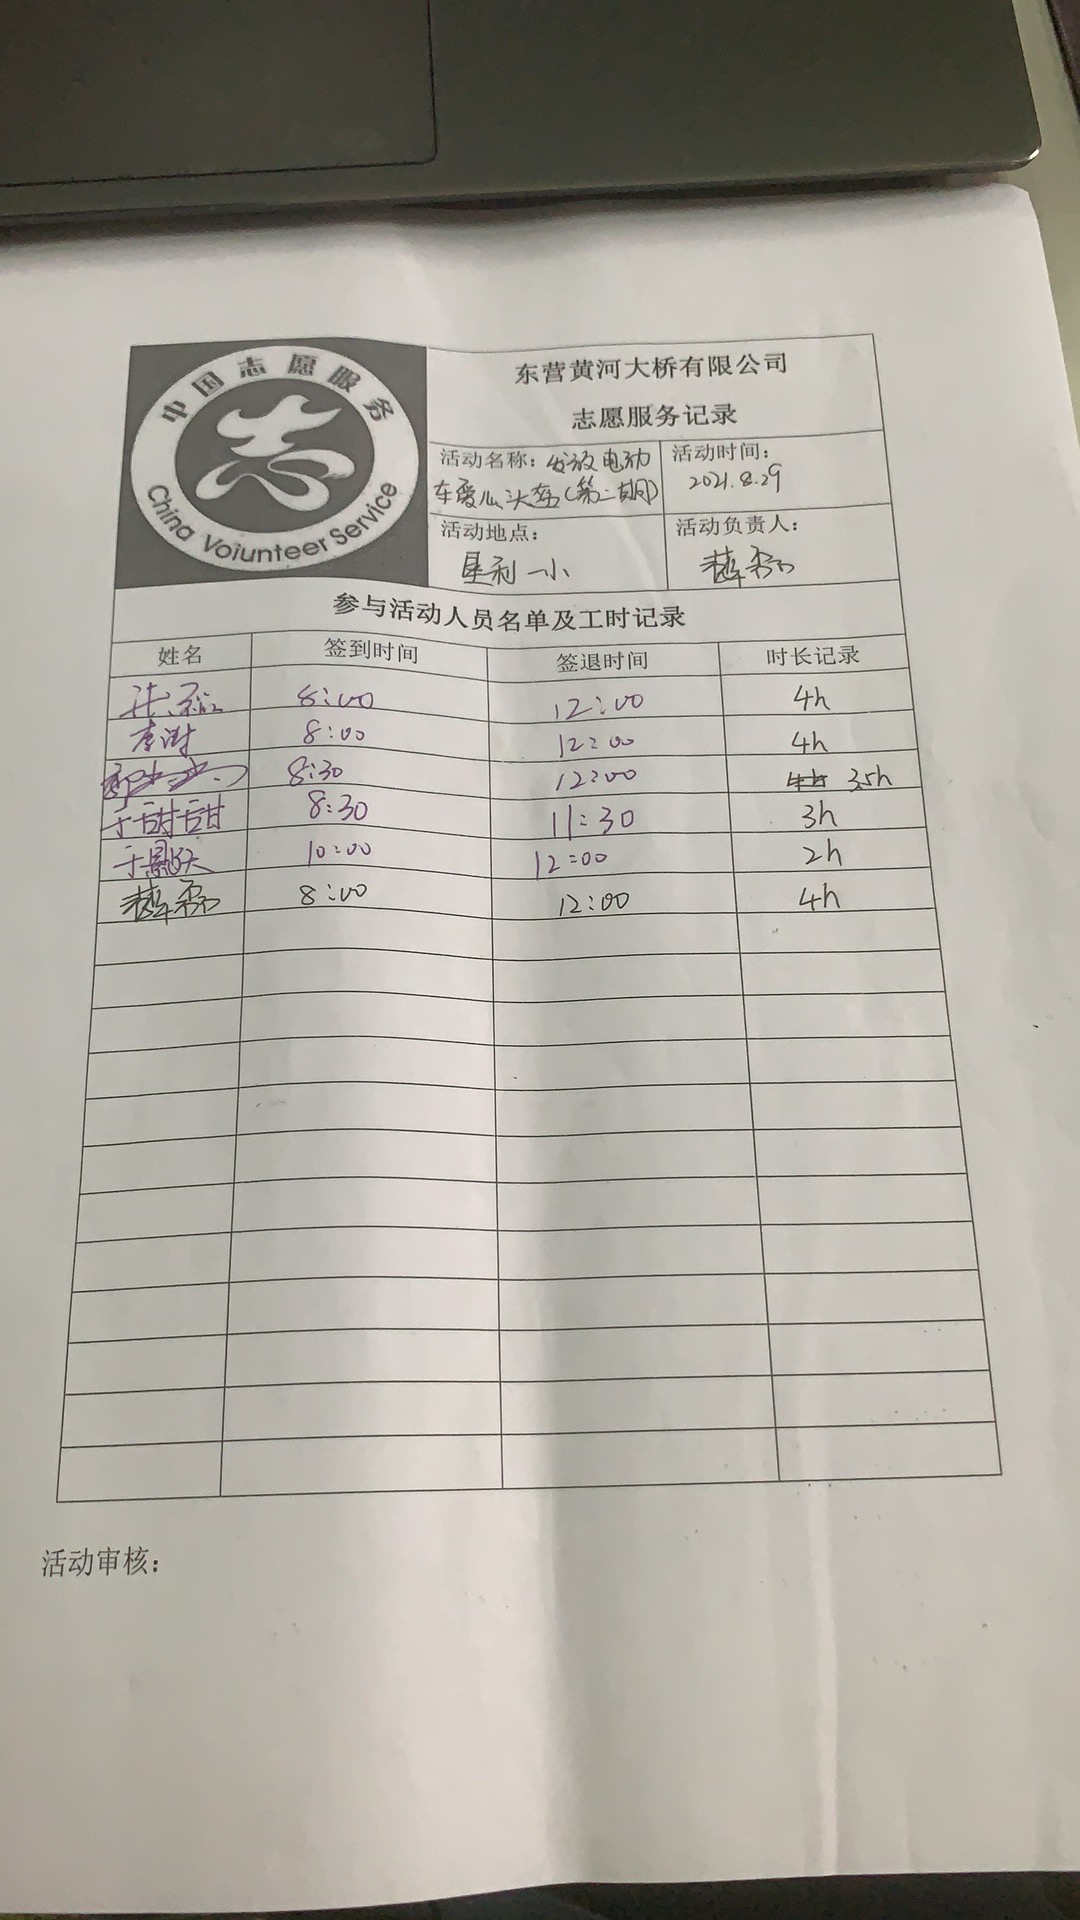 中国志愿服务
China Voiunteer Service
东营黄河大桥有限公司
志愿服务记录
活动名称：发放电动
车爱心头盔（第二期）
活动时间：
2021.8.29
活动地点：
垦利一小
活动负责人：
参与活动人员名单及工时记录
姓名 签到时间 签退时间 时长记录
8:00 12:00 4h
李澍 8:00 12:00 4h
8:30 12:00 3.5h
于甜甜 8:30 11:30 3h
10:00 12:00 2h
8:00 12:00 4h
活动审核：